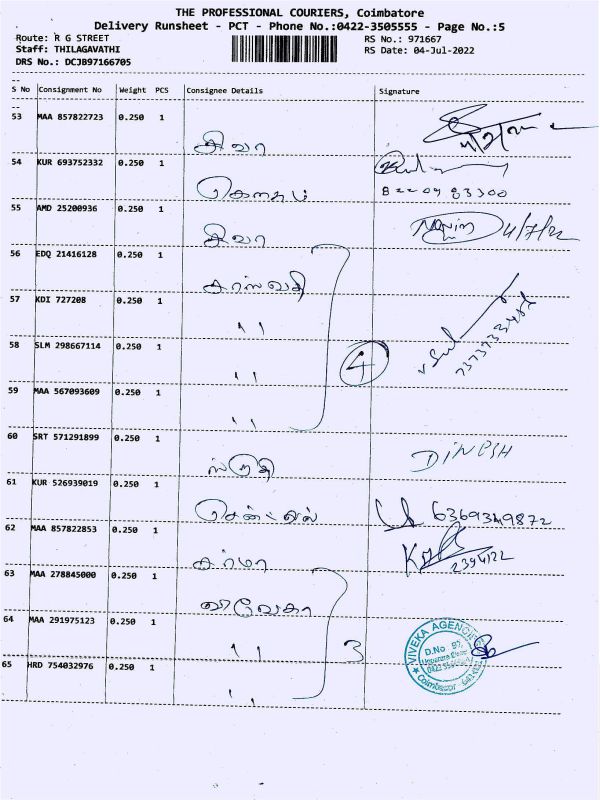 THE PROFESSIONAL COURIERS, Coimbatore
Delivery Runsheet - PCT - Phone No.:0422-3505555 - Page No.:5
Route: R G STREET
RS No.: 971667
Staff: THILAGAVATHI
RS Date: 04-Jul-2022
DRS No.: DCJB97166705
S No Consignment No Weight PCS Consignee Details Signature
53 MAA 857822723 0.250 1
சிவா
54 KUR 693752332 0.250 1
கௌதம்
8220983300
55 AMD 25200936 0.250 1
சிவா
4/7/22
56 EDQ 21416128 0.250 1
சரஸ்வதி
57 KDI 727208 0.250 1
,,
58 SLM 298667114 0.250 1
,,
4
59 MAA 567093609 0.250 1
,,
60 SRT 571291899 0.250 1
DINESH
61 KUR 526939019 0.250 1
6369349872
62 MAA 857822853 0.250 1
சர்மா
63 MAA 278845000 0.250 1
விவேகா
64 MAA 291975123 0.250 1
,,
3
VIVEKA AGENCIES
D.No
Coimbatore
65 HRD 754032976 0.250 1
,,